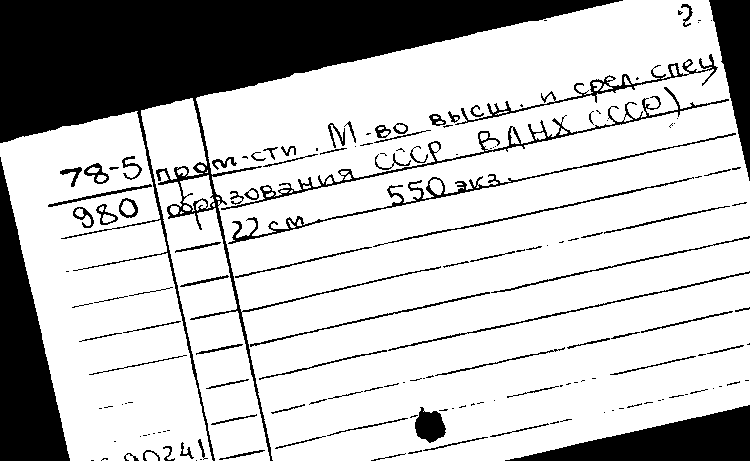 2.
78-5 пром-сти. М-во высш. и сред. спец.
980 образования СССР ВДНХ СССР).
22 см. 550 экз.
90241